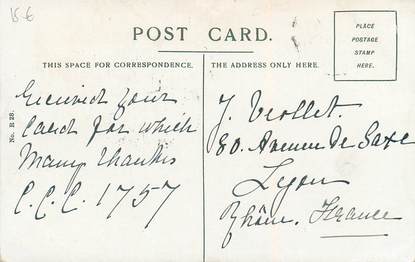 15-6
POST CARD.
PLACE
POSTAGE
STAMP
HERE.
THIS SPACE FOR CORRESPONDENCE.
THE ADDRESS ONLY HERE.
No. R 23.
Received your
Card for which
Many thanks
C.C.C. 1757
J. Viollet.
80. Avenue de Saxe
Lyon
Rhône. France